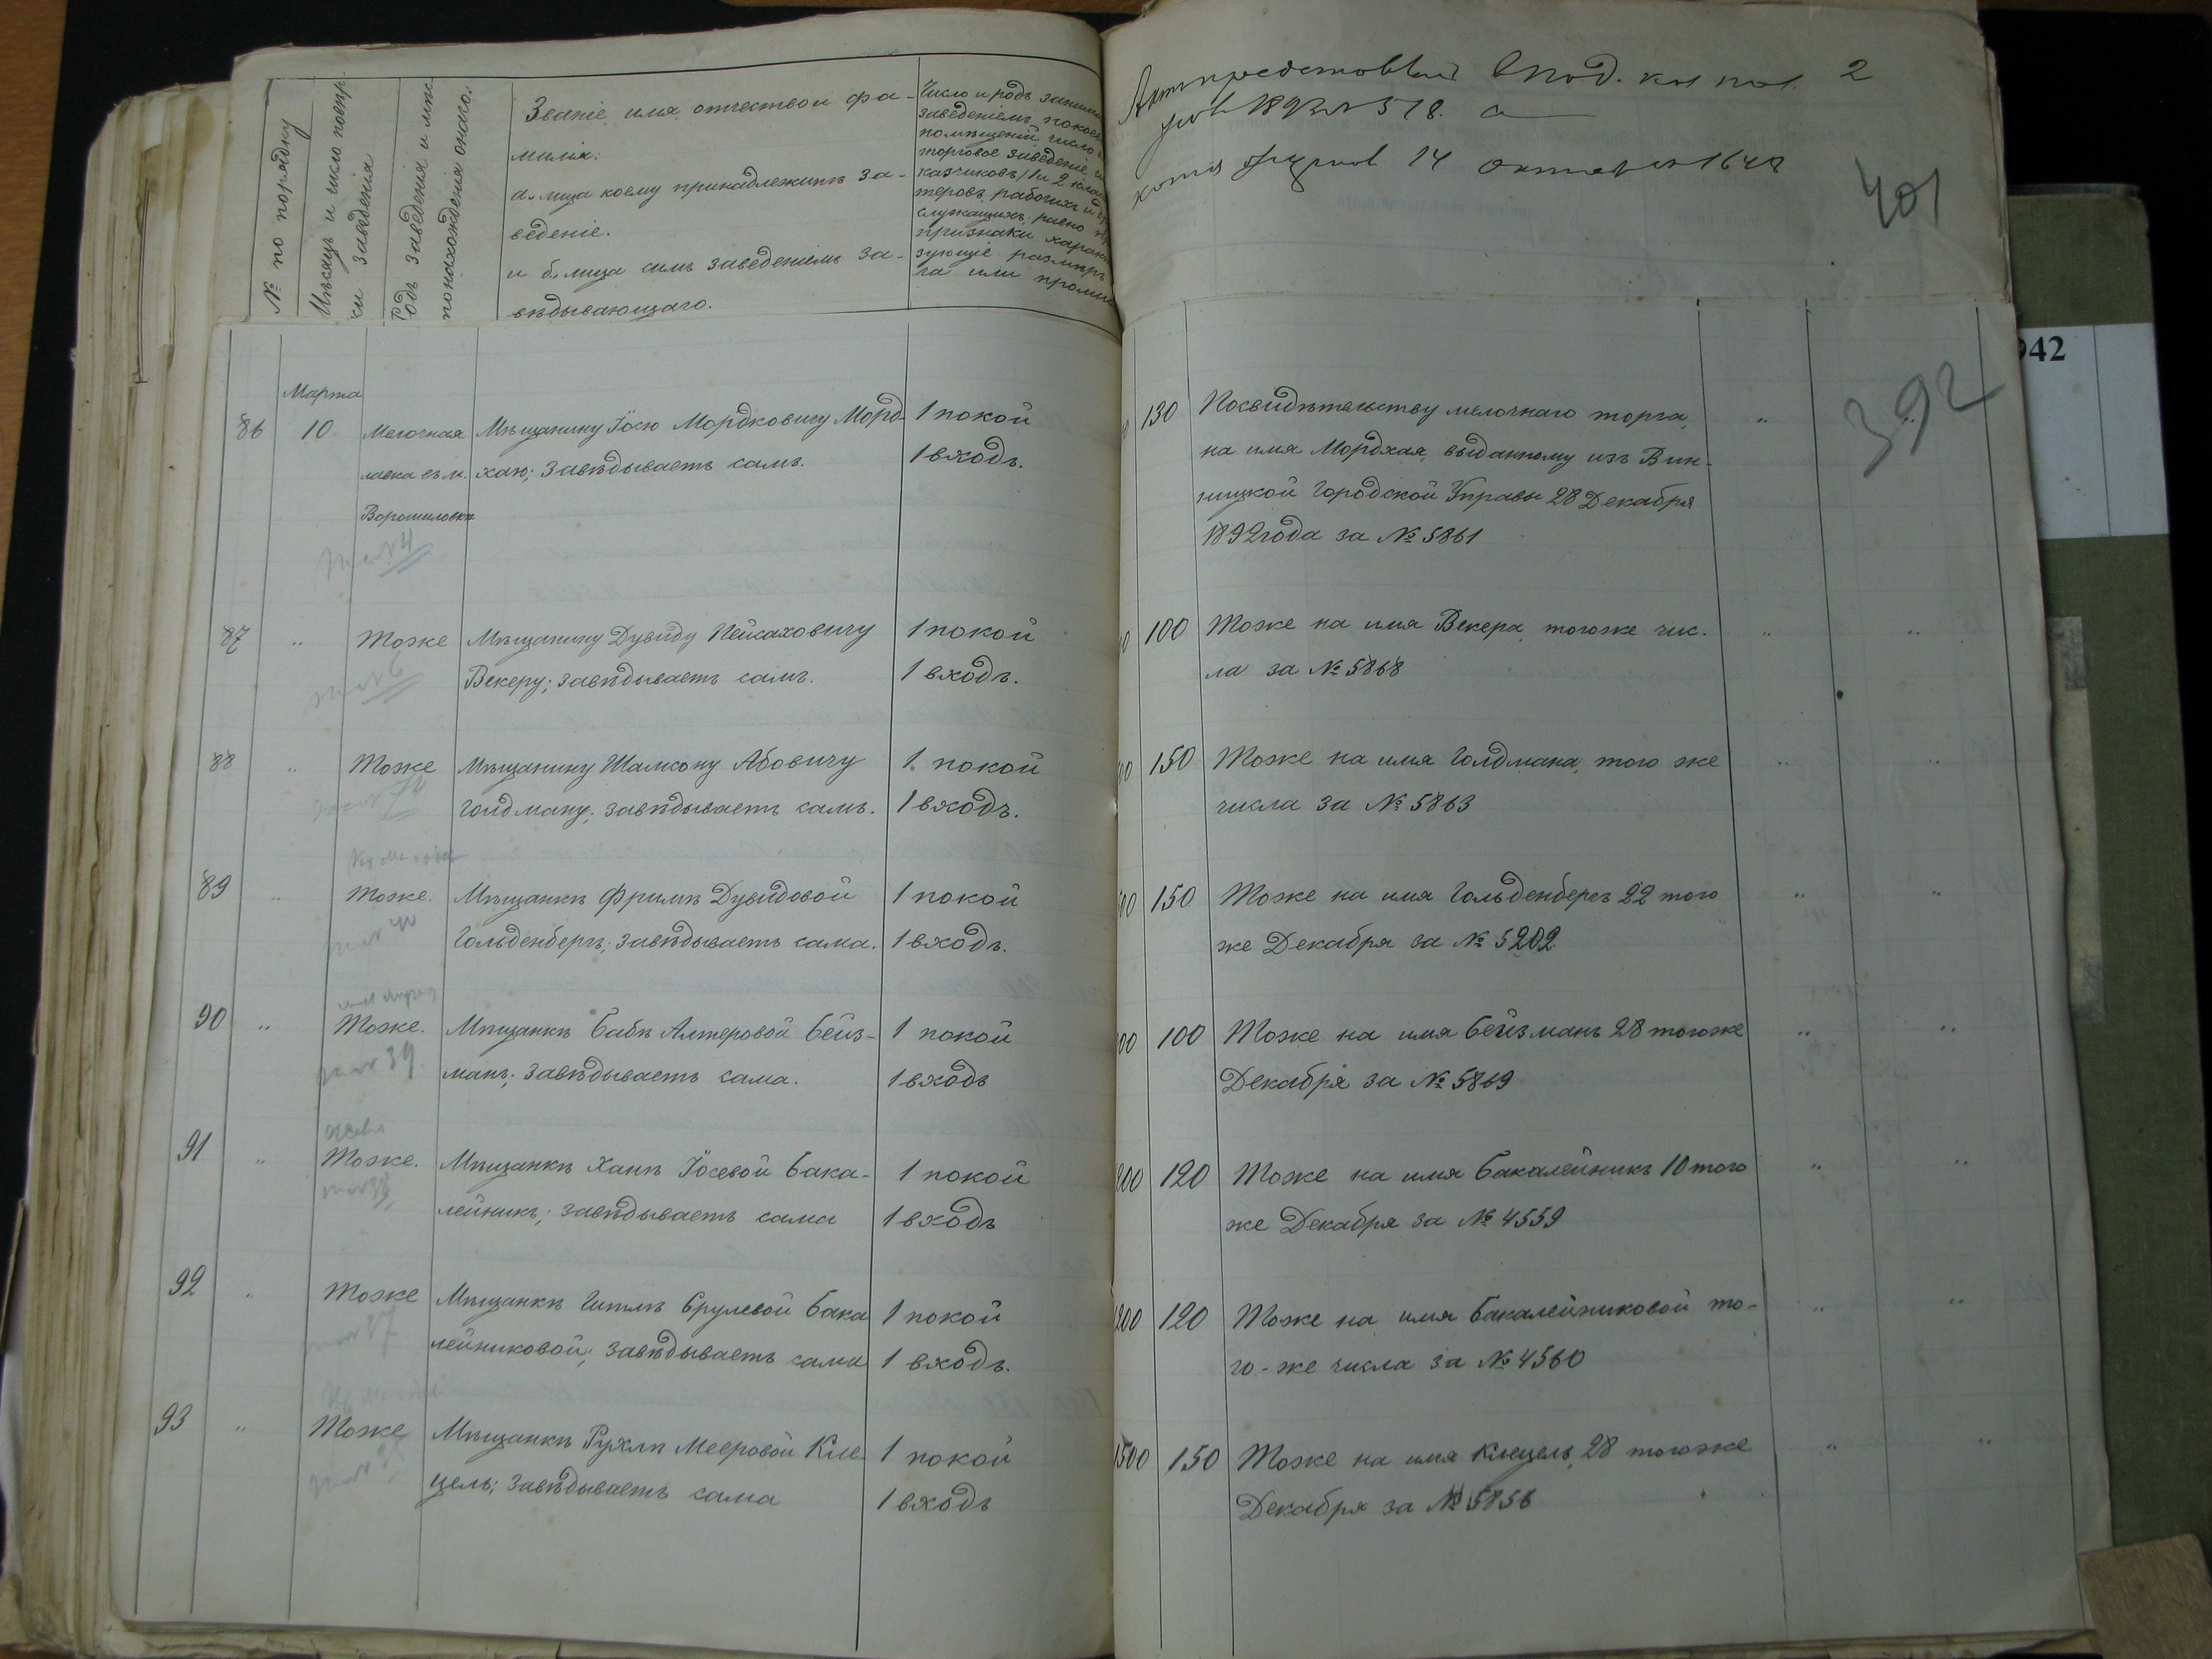 № по порядку
Мѣсяцъ и число повѣр-
ки заведенія
Родъ заведенія и мѣс
понахожденія онаго.
Званіе, имя, отчество и фа-
милія:
а. лица коему принадлежитъ за-
веденіе.
и б. лица симъ заведеніемъ за-
вѣдывающаго.
Число и родъ
заведеніемъ покоев
помѣщеній число
торговое заведеніе
казчиковъ 1 и 2
теровъ, рабочихъ и
служащихъ равно
признаки
зующіе размѣръ
га или
2
401
392
942
Марта
86 10 Мелочная Мѣщанину Іосю Мордковичу Морд- 1 покой
лавка въ м. хаю; Завѣдываетъ самъ. 1 входъ.
Ворошиловкѣ
4
130 По свидѣтельству мелочнаго торга, "
на имя Мордхая, выданному изъ Вин-
ницкой Городской Управы 28 Декабря
1892 года за № 5861
87 " Тоже Мѣщанину Дувиду Пейсаховичу 1 покой
Векеру; завѣдываетъ самъ. 1 входъ.
100 Тоже на имя Векера, того же чис- " "
ла за № 5868
88 " Тоже Мѣщанину Шамсону Абовичу 1 покой
Голдману; завѣдываетъ самъ. 1 входъ.
150 Тоже на имя Голдмана, того же " "
числа за № 5863
89 " Тоже. Мѣщанкѣ Фримѣ Дувидовой 1 покой
Гольденбергъ; завѣдываетъ сама. 1 входъ.
150 Тоже на имя Гольденбергъ 22 того " "
же Декабря за № 5202
90 " Тоже. Мѣщанкѣ Бабѣ Алтеровой Бейз- 1 покой
39
манъ; завѣдываетъ сама. 1 входъ
00 100 Тоже на имя Бейзманъ 28 того же " "
Декабря за № 5869
91 " Тоже. Мѣщанкѣ Ханѣ Іосевой Бака- 1 покой
лейникъ; завѣдываетъ сама 1 входъ
200 120 Тоже на имя Бакалейникъ 10 того " "
же Декабря за № 4559
92 " Тоже Мѣщанкѣ Гитлѣ Срулевой Бака 1 покой
37
лейниковой; завѣдываетъ сама 1 входъ.
200 120 Тоже на имя Бакалейниковой то- " "
го-же числа за № 4560
93 " Тоже Мѣщанкѣ Рухлѣ Мееровой Кле- 1 покой
цель; завѣдываетъ сама 1 входъ
1500 150 Тоже на имя Клецель, 28 того же " "
Декабря за № 5856